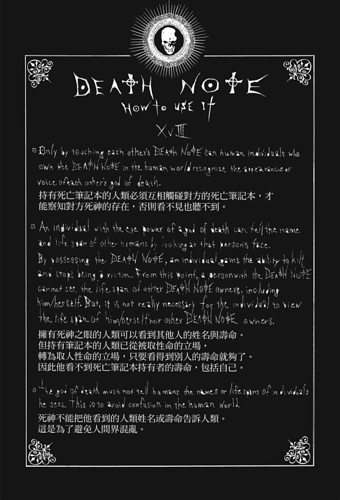 DEATH NOTE
HOW TO USE IT
XVIII
Only by touching each other's DEATH NOTE can human individuals who
own the DEATH NOTE in the human world recognize the appearance or
voice of each other's god of death.
持有死亡筆記本的人類必須互相觸碰對方的死亡筆記本，才
能察知對方死神的存在，否則看不見也聽不到。
An individual with the eye power of a god of death can tell the name
and life span of other humans by looking at that person's face.
By possessing the DEATH NOTE, an individual gains the ability to kill
and stops being a victim. From this point, a person with the DEATH NOTE
cannot see the life span of other DEATH NOTE owners, including
him/herself. But, it is not really necessary for the individual to view
the life span of him/herself nor other DEATH NOTE owners.
擁有死神之眼的人類可以看到其他人的姓名與壽命。
但持有筆記本的人類已從被取性命的立場，
轉為取人性命的立場，只要看得到別人的壽命就夠了。
因此他看不到死亡筆記本持有者的壽命，包括自己。
The god of death must not tell humans the names or life spans of individuals
he sees. This is to avoid confusion in the human world.
死神不能把他看到的人類姓名或壽命告訴人類。
這是為了避免人間界混亂。